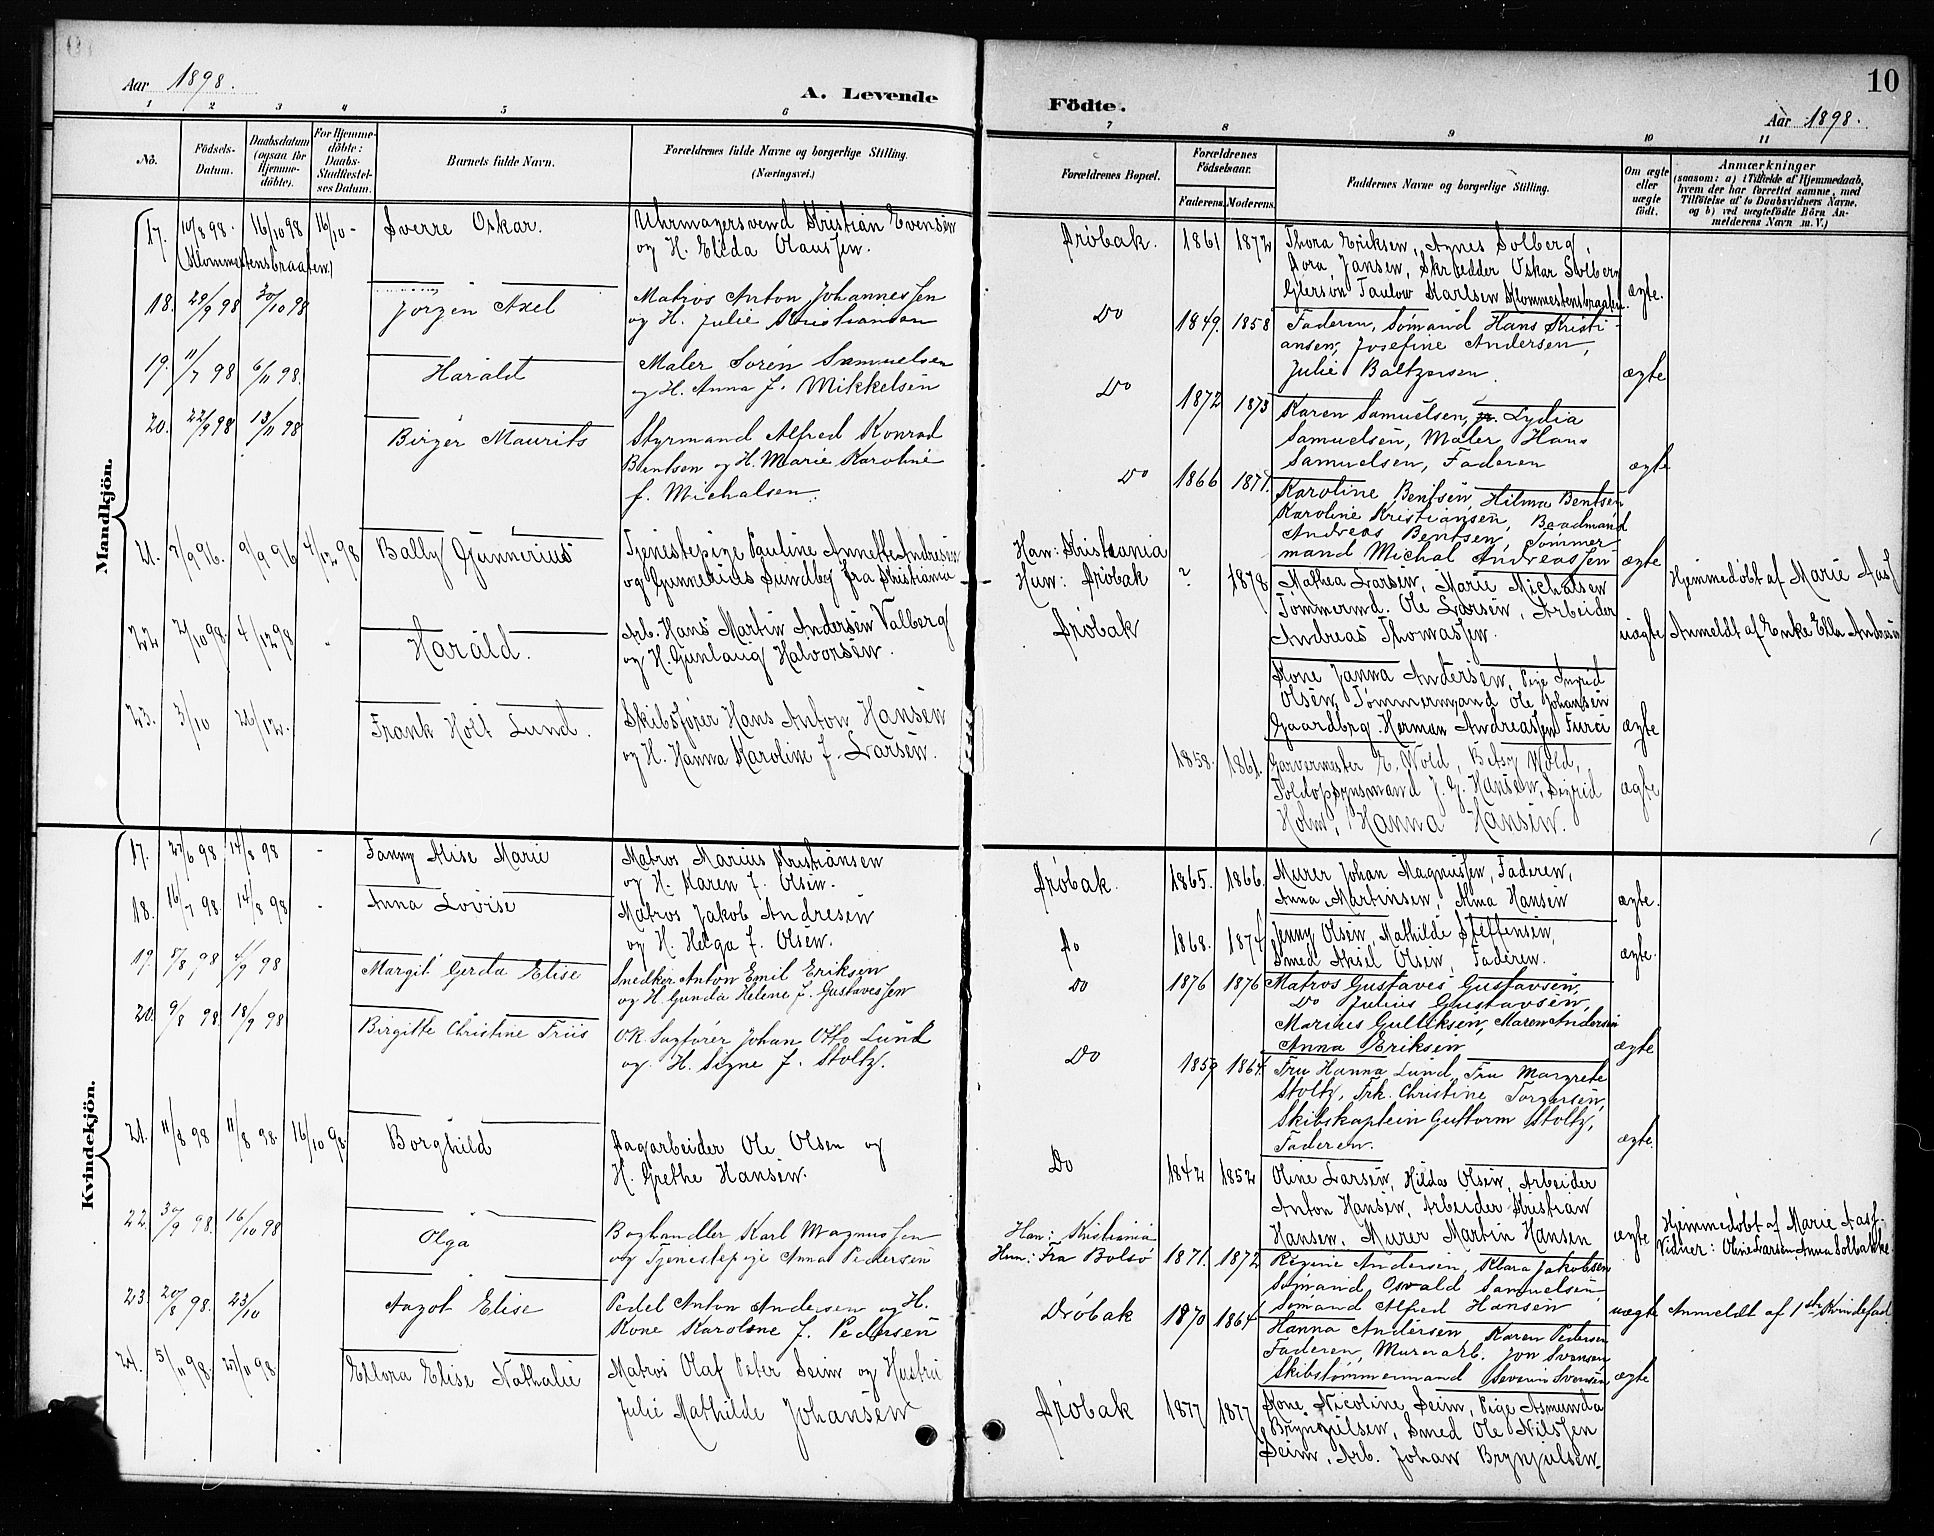 Aar 1898.
A. Levende
1 2 3 4 5 6
No.
Födsels-
Datum.
Daabsdatum
(ogsaa for
Hjemme-
döbte).
For Hjemme-
döbte:
Daabs-
Stadfæstel-
ses Datum.
Barnets fulde Navn.
Forældrenes fulde Navne og borgerlige Stilling.
(Næringsvei.)
Mandkjön.
17. 10/8 98. 16/10 98 16/10 - Sverre Oskar. Uhrmagersvend Kristian Evensen
(Klommestensbraaten)
og H. Elida Olaussen.
18. 28/9 98 30/10 98 Jörgen Axel Matros Anton Johannessen
og H. Julie Kristiansen
19. 11/7 98 6/11 98. Harald Maler Sören Samuelsen
og H. Anna f. Mikkelsen
20. 22/9 98 13/11 98 Birger Maurits Styrmand Alfred Konrad
Bentsen og H. Marie Karoline
f. Michalsen.
21. 7/9 96. 9/9 96 4/12 98 Bally Gunnerius Tjenestepige Pauline Annette Andresen
og Gunnerius Sundby fra Kristiania
22 2/10 98. 4/12 98 " Harald. Arb. Hans Martin Andersen Valberg
og H. Gunlaug Halvorsen.
23. 3/10 26/12. Frank Holt Lund. Skibsförer Hans Anton Hansen
og H. Hanna Karoline f. Larsen.
Kvindekjön.
17. 27/6 98 14/8 98 - Fanny Alise Marie Matros Marius Kristiansen
og H. Karen f. Olsen.
18. 16/7 98. 14/8 98 - Anna Lovise Matros Jakob Andresen
og H. Helga f. Olsen.
19. 5/8 98 4/9 98 Margit Gerda Elise Snedker Anton Emil Eriksen
og H. Gunda Helene f. Gustavessen
20. 9/8 98. 18/9 98 Birgitte Christine Friis O.R. Sagförer Johan Otto Lund
og H. Signe f. Stoltz.
21. 11/8 98 11/8 98. 16/10 98. Borghild Dagarbeider Ole Olsen og
H. Grethe Hansen.
22. 30/9 98. 16/10 98 Olga Boghandler Karl Magnussen
og Tjenestepige Anna Pedersen
23. 20/8 98. 23/10 Aagot Elise Pedel Anton Andersen og H.
Kone Karoline f. Pedersen
24. 5/11 98. 27/11 98. Ellora Elise Nathalie Matros Olaf Peter Seim og Hustru
Julie Mathilde Johansen
Födte.
10
Aar 1898.
7 8 9 10 11
Forældrenes Bopæl.
Forældrenes
Födselsaar.
Faderens. Moderens.
Faddernes Navne og borgerlige Stilling.
Om ægte
eller
uægte
födt.
Anmærkninger
(saasom: a) i Tilfælde af Hjemmedaab,
hvem der har forrettet samme, med
Tilföielse af to Daabsvidners Navne,
og b) ved uægtefödte Börn An-
melderens Navn m. V.)
Dröbak. 1861 1872 Thora Eriksen, Agnes Solberg,
Dora Jansen, Skrædder Oskar Solberg
Glersön Taulow Karlsen Klommestensbraaten. ægte.
Do 1849. 1858 Faderen, Sömand Hans Kristi-
ansen, Josefine Andersen,
Julie Baltzersen. ægte
Do 1872 1873 Karen Samuelsen, Lydia
Samuelsen, Maler Hans
Samuelsen, Faderen ægte
Do 1866 1871. Karoline Bentsen, Hilma Bentsen
Karoline Kristiansen, Baadmand
Andreas Bentsen, Tömmer
mand Michal Andreassen ægte
Han: Kristiania
Hun: Dröbak ? 1878 Mathea Larsen, Marie Michalsen
Hjemmedöbt af Marie Aas
Tömmermd. Ole Larsen, Arbeider
Andreas Thomassen. uægte Anmeldt af Enke Ella Andresen
Dröbak
Kone Janna Andersen, Pige Ingrid
Olsen, Tömmermand Ole Johansen
Gaardbrg. Herman Andreassen Furci ægte
1858. 1861. Garvermester E. Wold, Betsy Wold,
Toldopsynsmand J. G. Hansen, Sigrid
Holm, Hanna Hansen. ægte
Dröbak. 1865. 1866. Murer Johan Magnussen, Faderen,
Anna Martinsen, Alma Hansen ægte.
Do 1868. 1874 Jenny Olsen, Mathilde Steffensen,
Smed Aksel Olsen, Faderen. ægte.
Do 1876 1876 Matros Gustaves Gustavsen,
Do Julius Gustavsen,
Marius Gulliksen, Maren Andersen
Anna Eriksen ægte
Do 1859 1864. Fru Hanna Lund, Fru Margrete
Stoltz, Frk. Christine Torgersen,
Skibskaptein Guttorm Stoltz,
Faderen. ægte.
Do 1842 1852 Oline Larsen, Hilda Olsen, Arbeider
Anton Hansen, Arbeider Kristian
Hansen, Murer Martin Hansen ægte
Hjemmedöbt af Marie Aas.
Vidner: Oline Larsen, Anna Solbakke.
Han: Kristiania
Hun: Fra Bolsö 1871. 1872 Regine Andersen, Klara Jakobsen
Sömand Oswald Samuelsen,
Sömand Alfred Hansen uægte Anmeldt af 1ste Kvindefad.
Dröbak 1870 1864 Hanna Andersen, Karen Pedersen
Faderen, Murerarb. Jon Svensen
Skibstömmermand Severin Svensen ægte
Dröbak 1877 1877 Kone Nicoline Seim, Pige Asmunda
Brynjulsen, Smed Ole Nilssen
Seim, Arb. Johan Brynjulsen.